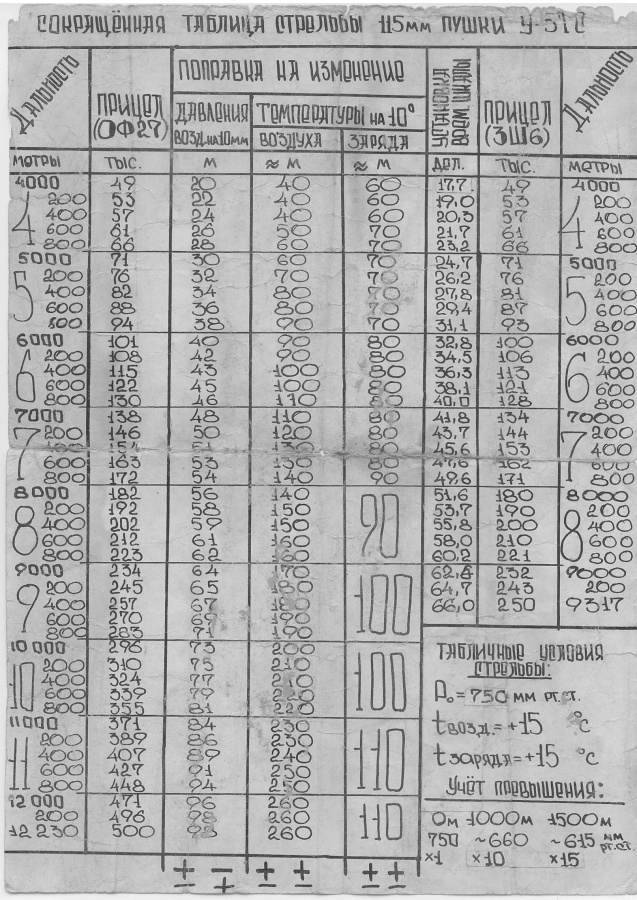 СОКРАЩЁННАЯ ТАБЛИЦА СТРЕЛЬБЫ 115мм ПУШКИ У-5ТС
Дальность ПРИЦЕЛ (ОФ27) ПОПРАВКА НА ИЗМЕНЕНИЕ УСТАНОВКА ВРЕМ. ШКАЛЫ ПРИЦЕЛ (3Ш6) Дальность
ДАВЛЕНИЯ ВОЗД. НА 10ММ ТЕМПЕРАТУРЫ НА 10°
ВОЗДУХА ЗАРЯДА
МЕТРЫ ТЫС. М ≈ М ≈ М ДЕЛ. ТЫС. МЕТРЫ
4000 49 20 40 60 17,7 49 4000
4 200 53 22 40 60 19,0 53 4 200
400 57 24 40 60 20,3 57 400
600 61 26 50 70 21,7 61 600
800 66 28 60 70 23,2 66 800
5000 71 30 60 70 24,7 71 5000
5 200 76 32 70 70 26,2 76 5 200
400 82 34 80 70 27,8 81 400
600 88 36 80 70 29,4 87 600
800 94 38 90 70 31,1 93 800
6000 101 40 90 80 32,8 100 6000
6 200 108 42 90 80 34,5 106 6 200
400 115 43 100 80 36,3 113 400
600 122 45 100 80 38,1 121 600
800 130 46 110 80 40,0 128 800
7000 138 48 110 80 41,8 134 7000
7 200 146 50 120 80 43,7 144 7 200
400 154 51 130 80 45,6 153 400
600 163 53 130 80 47,6 162 600
800 172 54 140 90 49,6 171 800
8000 182 56 140 90 51,6 180 8000
8 200 192 58 150 53,7 190 8 200
400 202 59 150 55,8 200 400
600 212 61 160 58,0 210 600
800 223 62 160 60,2 221 800
9000 234 64 170 100 62,4 232 9000
9 200 245 65 180 64,7 243 200
400 257 67 180 66,0 250 9317
600 270 69 190
800 283 71 190
10000 296 73 200 100
10 200 310 75 210
400 324 77 210
600 339 79 220
800 355 81 220
11000 371 84 230 110
11 200 389 86 230
400 407 89 240
600 427 91 250
800 448 94 250
12000 471 96 260 110
200 496 98 260
12230 500 98 260
± ∓ ± ± ± ±
ТАБЛИЧНЫЕ УСЛОВИЯ
СТРЕЛЬБЫ:
Ро = 750 ММ РТ.СТ.
t ВОЗД. = +15 °С
t ЗАРЯДА = +15 °С
УЧЁТ ПРЕВЫШЕНИЯ:
0м 1000м 1500м
750 ~660 ~615 ММ РТ.СТ.
×1 ×10 ×15